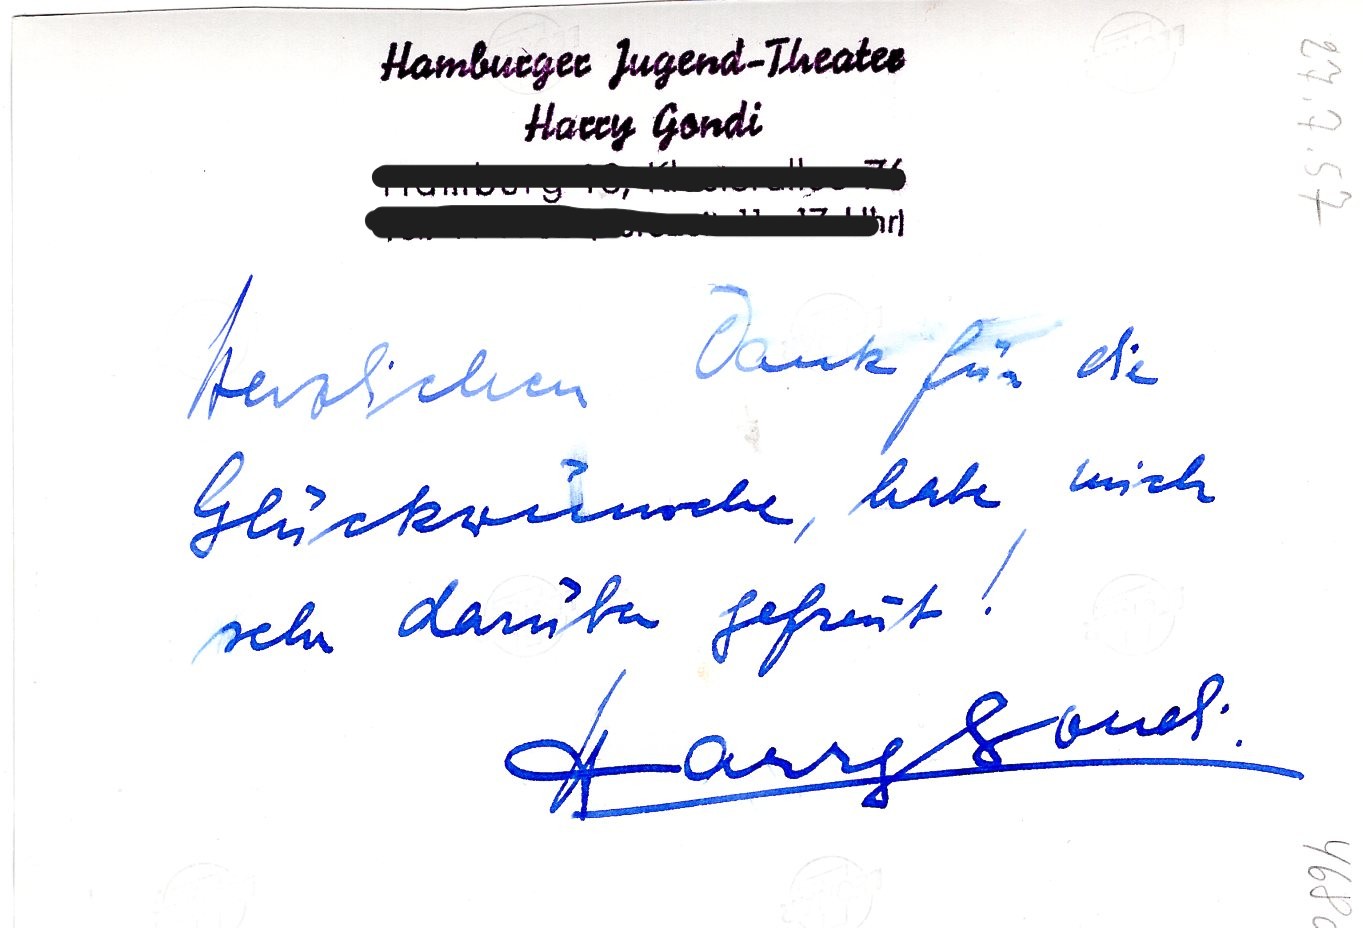 Hamburger Jugend-Theater
Harry Gondi
Herzlichen Dank für die
Glückwünsche, habe mich
sehr darüber gefreut!
Harry Gondi.
27.7.57
468